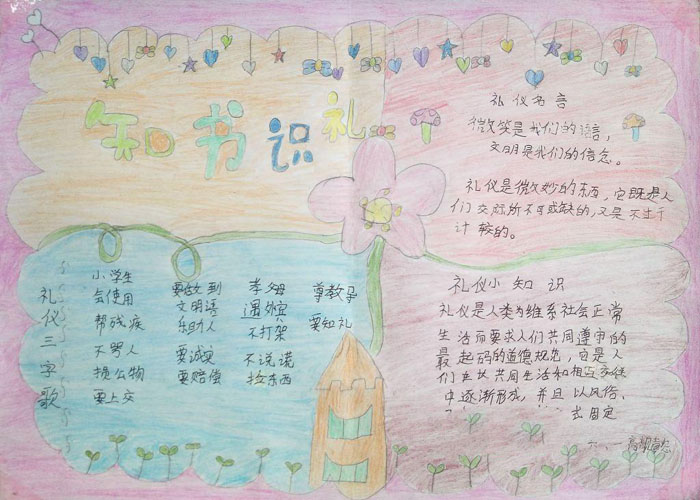 知书识礼
礼仪名言
微笑是我们的语言,
文明是我们的信念。
礼仪是微妙的东西,它既是人
们交际所不可或缺的,又是不过于
计较的。
礼仪三字歌
小学生 要做到 孝母 尊教导
会使用 文明语 遇外宾 要知礼
帮残疾 乐助人 不打架
不骂人 要诚实 不说谎
损公物 要赔偿 捡东西
要上交
礼仪小知识
礼仪是人类为维系社会正常
生活而要求人们共同遵守的
最起码的道德规范,它是人
们在长共同生活和相互交往
中逐渐形成,并且以风俗、
式固定